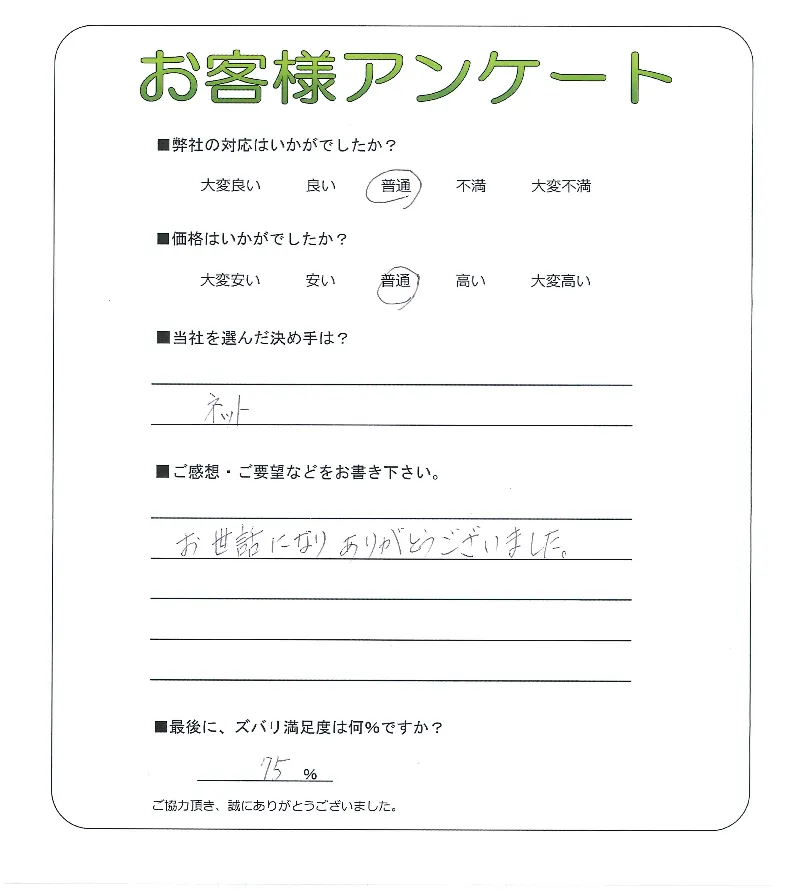 お客様アンケート
■弊社の対応はいかがでしたか？
大変良い 良い 普通 不満 大変不満
■価格はいかがでしたか？
大変安い 安い 普通 高い 大変高い
■当社を選んだ決め手は？
ネット
■ご感想・ご要望などをお書き下さい。
お世話になりありがとうございました。
■最後に、ズバリ満足度は何%ですか？
75 %
ご協力頂き、誠にありがとうございました。